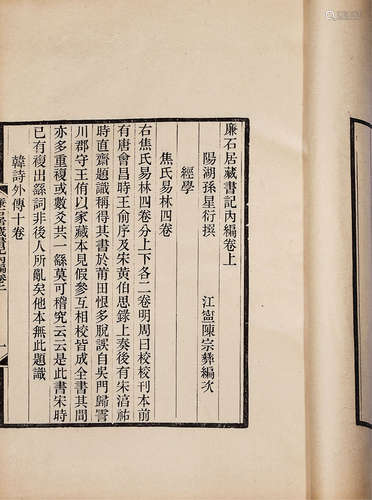 廉石居藏書記內編卷上
陽湖孫星衍撰　江寧陳宗彝編次
經學
焦氏易林四卷
右焦氏易林四卷分上下各二卷明周曰校校刊本前
有唐會昌時王俞序及宋黃伯思錄上奏後有宋淳祐
時直齋題識稱得其書於莆田恨多脫誤自吳門歸霅
川郡守王侑以家藏本見假參互相校皆成全書其間
亦多重複或數爻共一繇莫可稽究云云是此書宋時
已有複出繇詞非後人所亂矣他本無此題識
韓詩外傳十卷
廉石居藏書記內編卷上
一